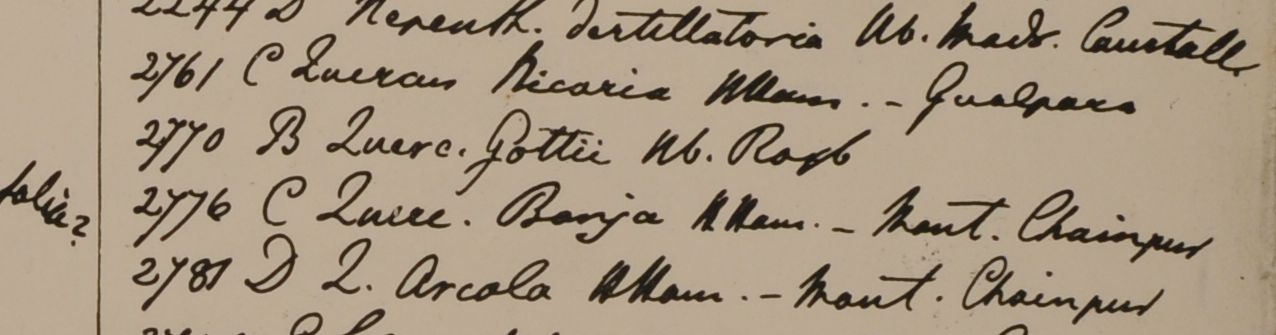 2244 D Nepenth. destillatoria Hb. Madr. Caustall
2761 C Quercus Ricaria HHam. - Gualpara
2770 B Querc. Gottii Hb. Roxb
folia?
2776 C Querc. Banja HHam. - Mont. Chainpur
2781 D Q. Arcola HHam. - Mont. Chainpur